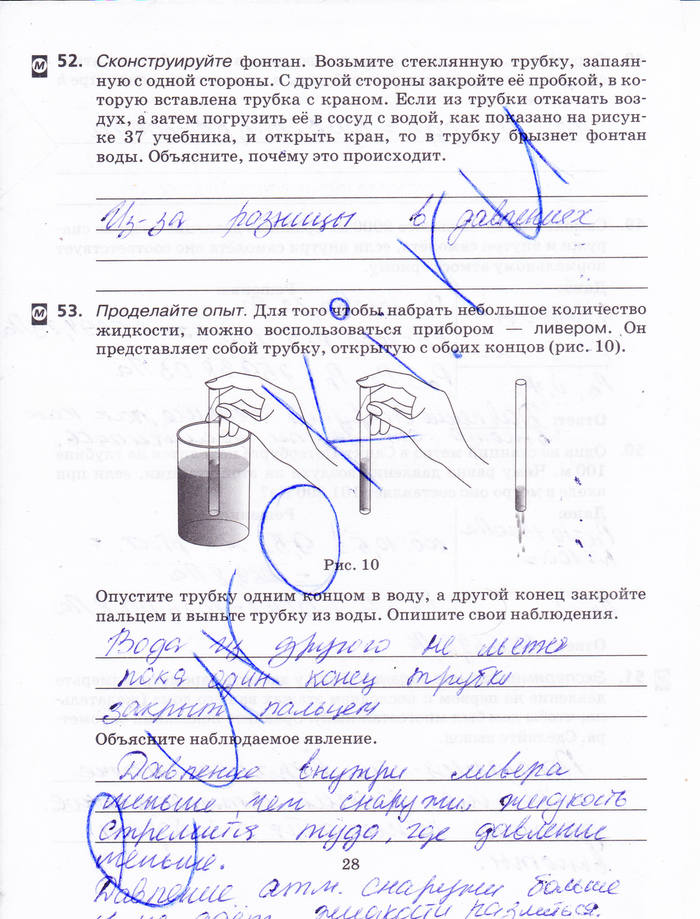 м 52. Сконструируйте фонтан. Возьмите стеклянную трубку, запаян-
ную с одной стороны. С другой стороны закройте её пробкой, в ко-
торую вставлена трубка с краном. Если из трубки откачать воз-
дух, а затем погрузить её в сосуд с водой, как показано на рисун-
ке 37 учебника, и открыть кран, то в трубку брызнет фонтан
воды. Объясните, почему это происходит.
Из-за разницы в давлениях
м 53. Проделайте опыт. Для того чтобы набрать небольшое количество
жидкости, можно воспользоваться прибором — ливером. Он
представляет собой трубку, открытую с обоих концов (рис. 10).
Рис. 10
Опустите трубку одним концом в воду, а другой конец закройте
пальцем и выньте трубку из воды. Опишите свои наблюдения.
Вода из другого не льется
пока один конец трубки
закрыт пальцем
Объясните наблюдаемое явление.
Давление внутри ливера
меньше, чем снаружи, жидкость
стремится туда, где давление
меньше.
28
Давление атм. снаружи больше
и не даёт жидкости разлиться